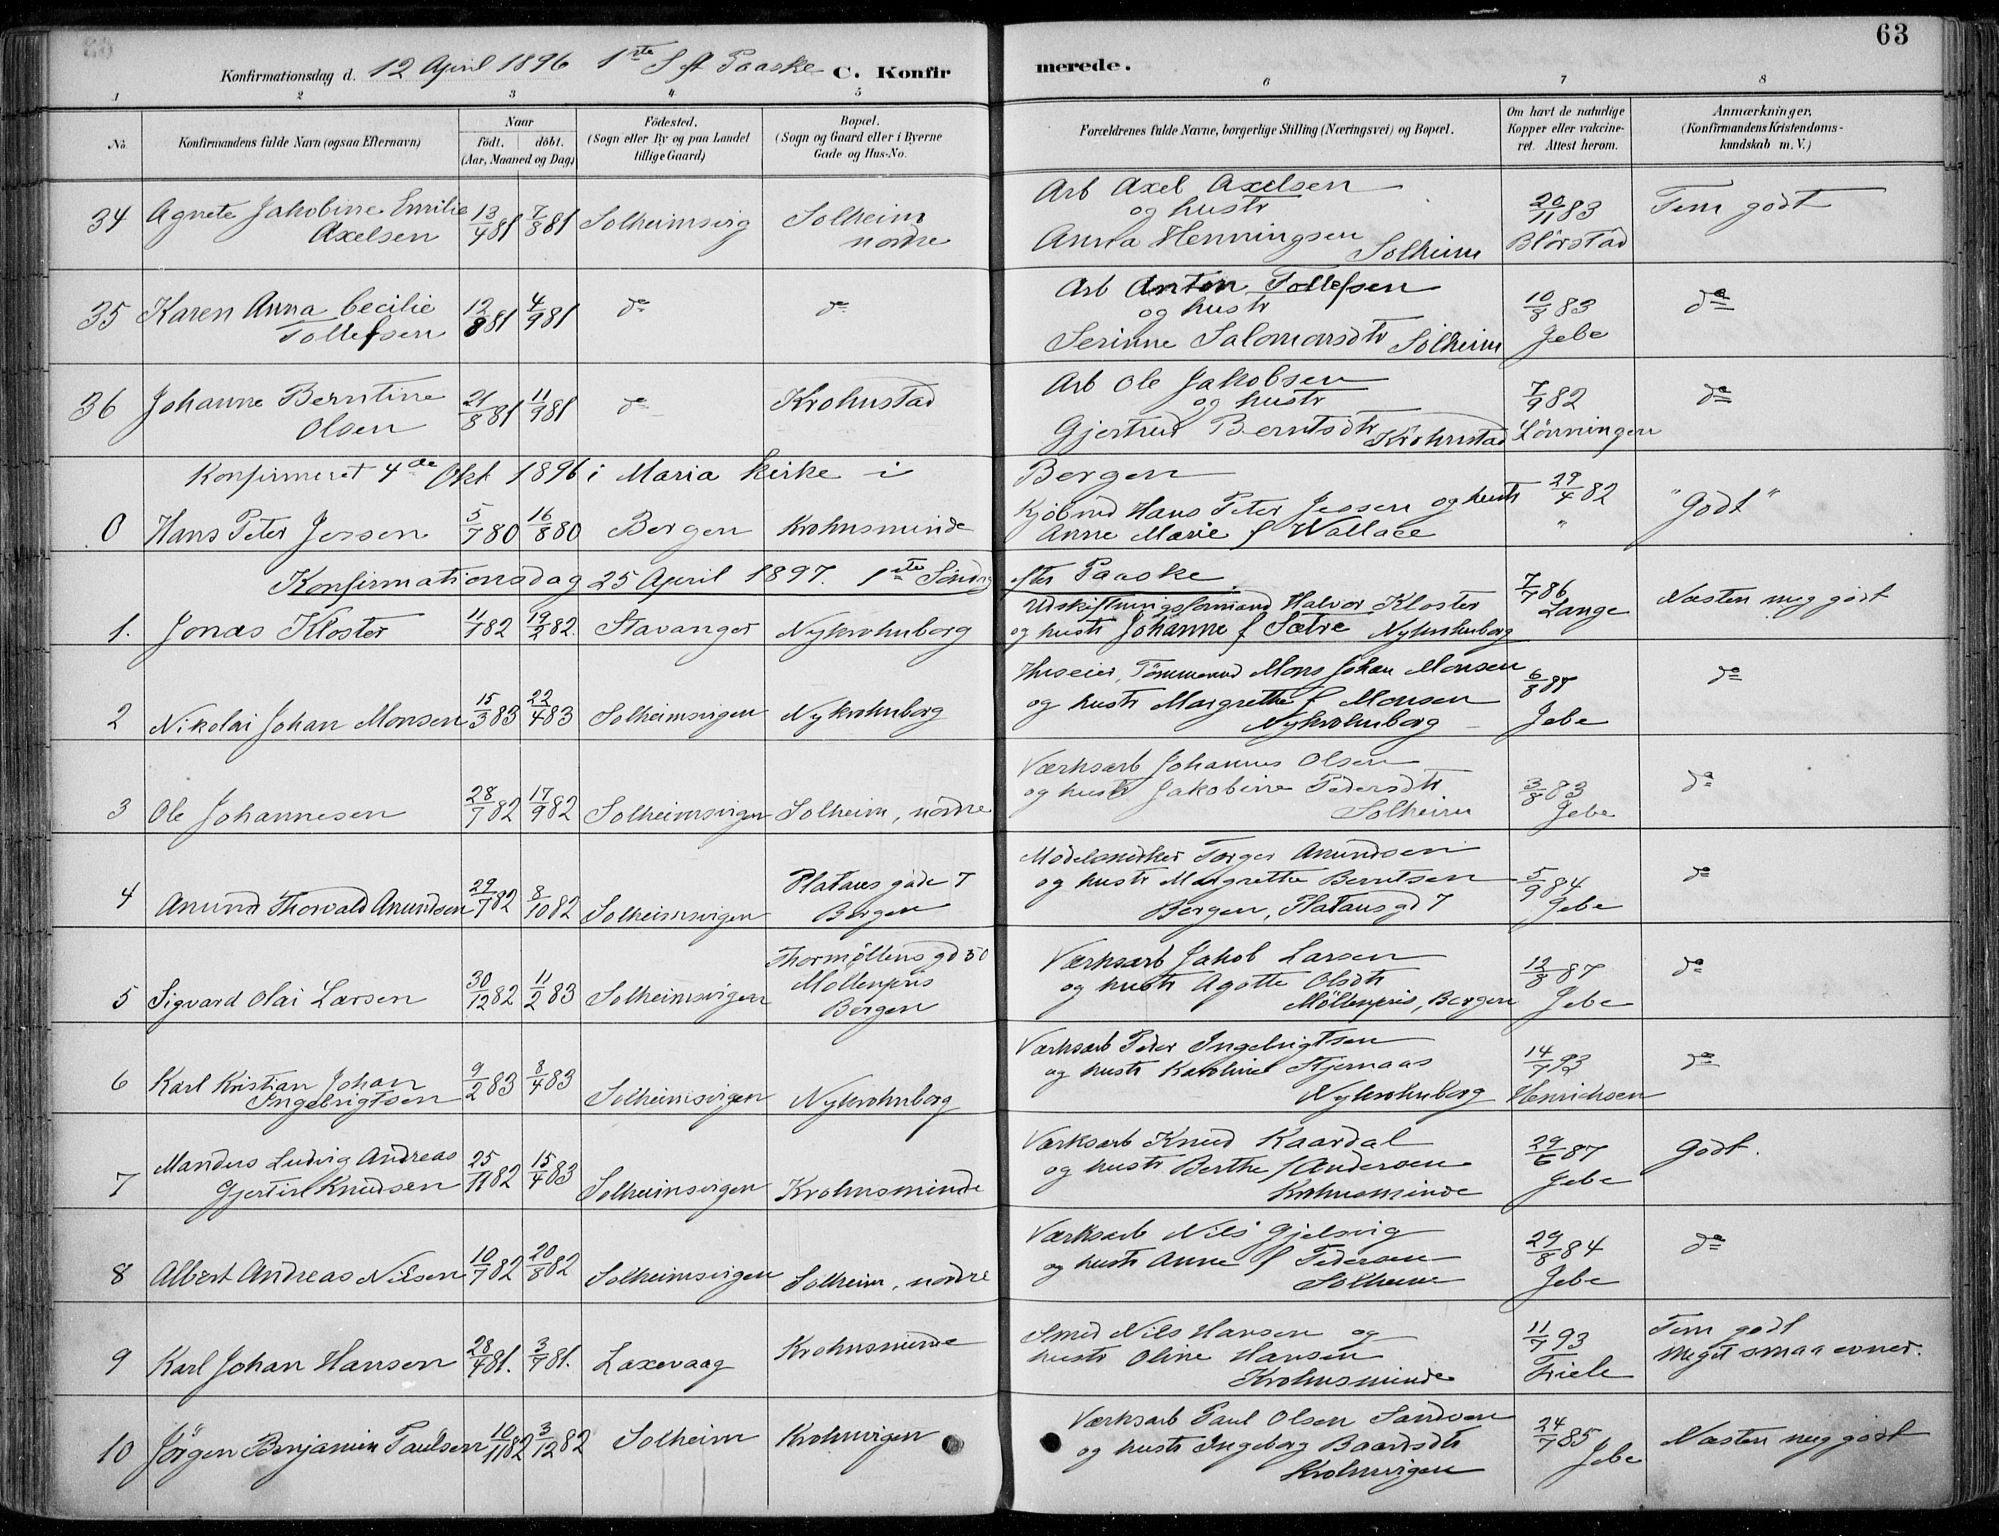 63
Konfirmationsdag d. 12 April 1896 1ste S. ft Paaske C. Konfirmerede.
1 2 3 4 5 6 7 8
No. Konfirmandens fulde Navn (ogsaa Efternavn) Naar født. døbt. (Aar, Maaned og Dag) Fødested. (Sogn eller By og paa Landet tillige Gaard) Bopæl. (Sogn og Gaard eller i Byerne Gade og Hus-No. Forældrenes fulde Navne, borgerlige Stilling (Næringsvei) og Bopæl. Om havt de naturlige Kopper eller vakcineret. Attest herom. Anmærkninger. (Konfirmandens Kristendomskundskab m. V.)
34 Agnete Jakobine Emilie Axelsen 13/4 81 7/8 81 Solheimsvig Solheim nordre Arb Axel Axelsen og hustr Anna Henningsen Solheim 20/11 83 Blørstad Tem godt
35 Karen Anna Cecilie Tollefsen 12/8 81 4/9 81 do do Arb Anton Tollefsen og hustr Serinne Salomonsdtr Solheim 10/8 83 Jebe do
36 Johanne Berntine Olsen 21/8 81 11/9 81 do Krohnstad Arb Ole Jakobsen og hustr Gjertrud Berntsdtr Krohnstad 7/9 82 Lønningen do
Konfirmeret 4de Okt 1896 i Maria kirke i Bergen
0 Hans Peter Jessen 5/7 80 16/8 80 Bergen Krohnsminde Kjøbmd Hans Peter Jessen og hustr Anne Marie f Wallace 29/4 82 " "Godt"
Konfirmationsdag 25 April 1897. 1ste Søndag efter Paaske
1. Jonas Kloster 11/1 82 19/2 82. Stavanger Nykrohnborg Udskiftningsformand Halvor Kloster og hustr Johanne f Sætre Nykrohnborg 7/7 86 Lange Næsten meg godt
2 Nikolai Johan Monsen 15/3 83 22/4 83 Solheimsvigen Nykrohnborg Huseier, Tømmermd Mons Johan Monsen og hustr Margrethe f Monsen Nykrohnborg 6/8 87 Jebe do
3 Ole Johannesen 28/7 82 17/9 82 Solheimsvigen Solheim, nordre Værksarb Johannes Olsen og hustr Jakobine Pedersdtr Solheim 3/8 83 Jebe do
4 Anund Thorvald Anundsen 29/7 82 8/10 82 Solheimsvigen Platousgade 7 Bergen Modelsnedker Torger Anundsen og hustr Margrethe Berntsen Bergen, Platousgd 7 5/9 84 Jebe do
5 Sigvard Olai Larsen 30/12 82 11/2 83 Solheimsvigen Thormøllensgd 50 Møllenpris Bergen Værksarb Jakob Larsen og hustr Agotte Olsdtr Møllenpris, Bergen 12/8 87 Jebe do
6 Karl Kristian Johan Ingebrigtsen 9/2 83 8/4 83 Solheimsvigen Nykrohnborg Værksarb Peder Ingebrigtsen og hustr Karoline Stjernaas Nykrohnborg 14/7 93 Henrichsen do
7 Mandus Ludvig Andreas Gjertin Knudsen 25/11 82 15/4 83 Solheimsvigen Krohnsminde Værksarb Knud Kaardal og hustr Berthe f Andersen Krohnsminde 29/6 87 Jebe Godt.
8 Albert Andreas Nilsen 10/7 82 20/8 82 Solheimsvigen Solheim, nordre Værksarb Nils Gjelsvig og hustr Anne f Pedersen Solheim 29/8 84 Jebe do
9 Karl Johan Hansen 28/4 81. 3/7 81. Laxevaag Krohnsminde Smed Nils Hansen og hustr Oline Hansen Krohnsminde 11/7 93 Friele Tem godt Meget smaa evner.
10 Jørgen Benjamin Paulsen 10/11 82 3/12 82 Solheim Krohnvigen Værksarb Paul Olsen Sandven og hustr Ingeborg Baardsdtr Krohnvigen 24/7 85 Jebe Næsten meg godt